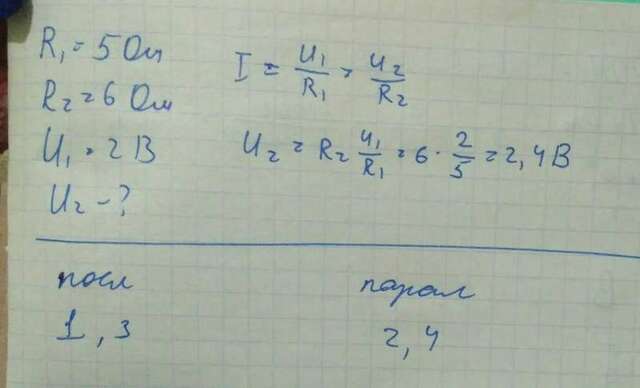 R₁ = 5 Ом
R₂ = 6 Ом
U₁ = 2 В
U₂ - ?
I = U₁/R₁ = U₂/R₂
U₂ = R₂ U₁/R₁ = 6 · 2/5 = 2,4 В
посл
1, 3
парал
2, 4